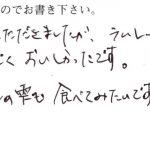 のでお書き下さい。
ただきましたが、
くおいしかったです。
の雫も食べてみたいです